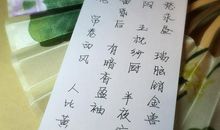 永昼 瑞脑消金兽
阳 玉枕纱厨 半夜
黄昏后 有暗香盈袖
帘卷西风 人比黄